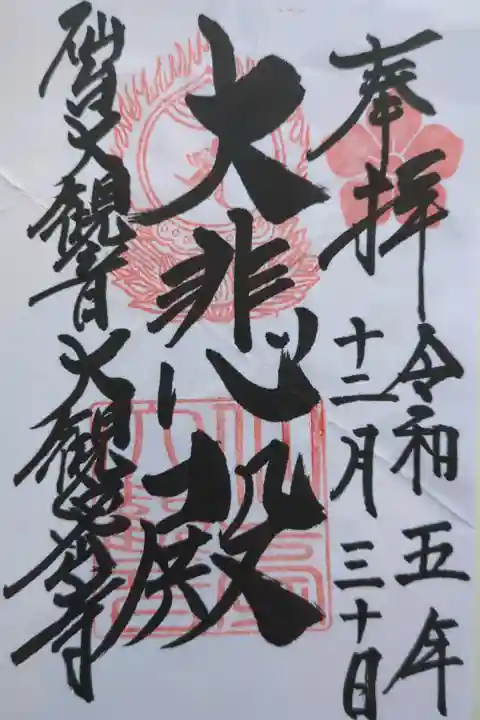 奉拝
令和五年
十二月三十日
大悲殿
観音 大観音寺